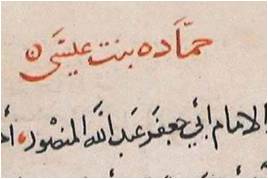 حمَّاده بنت عيسَى
الامام أبي جعفَر عَبد الله المنصُور، أ